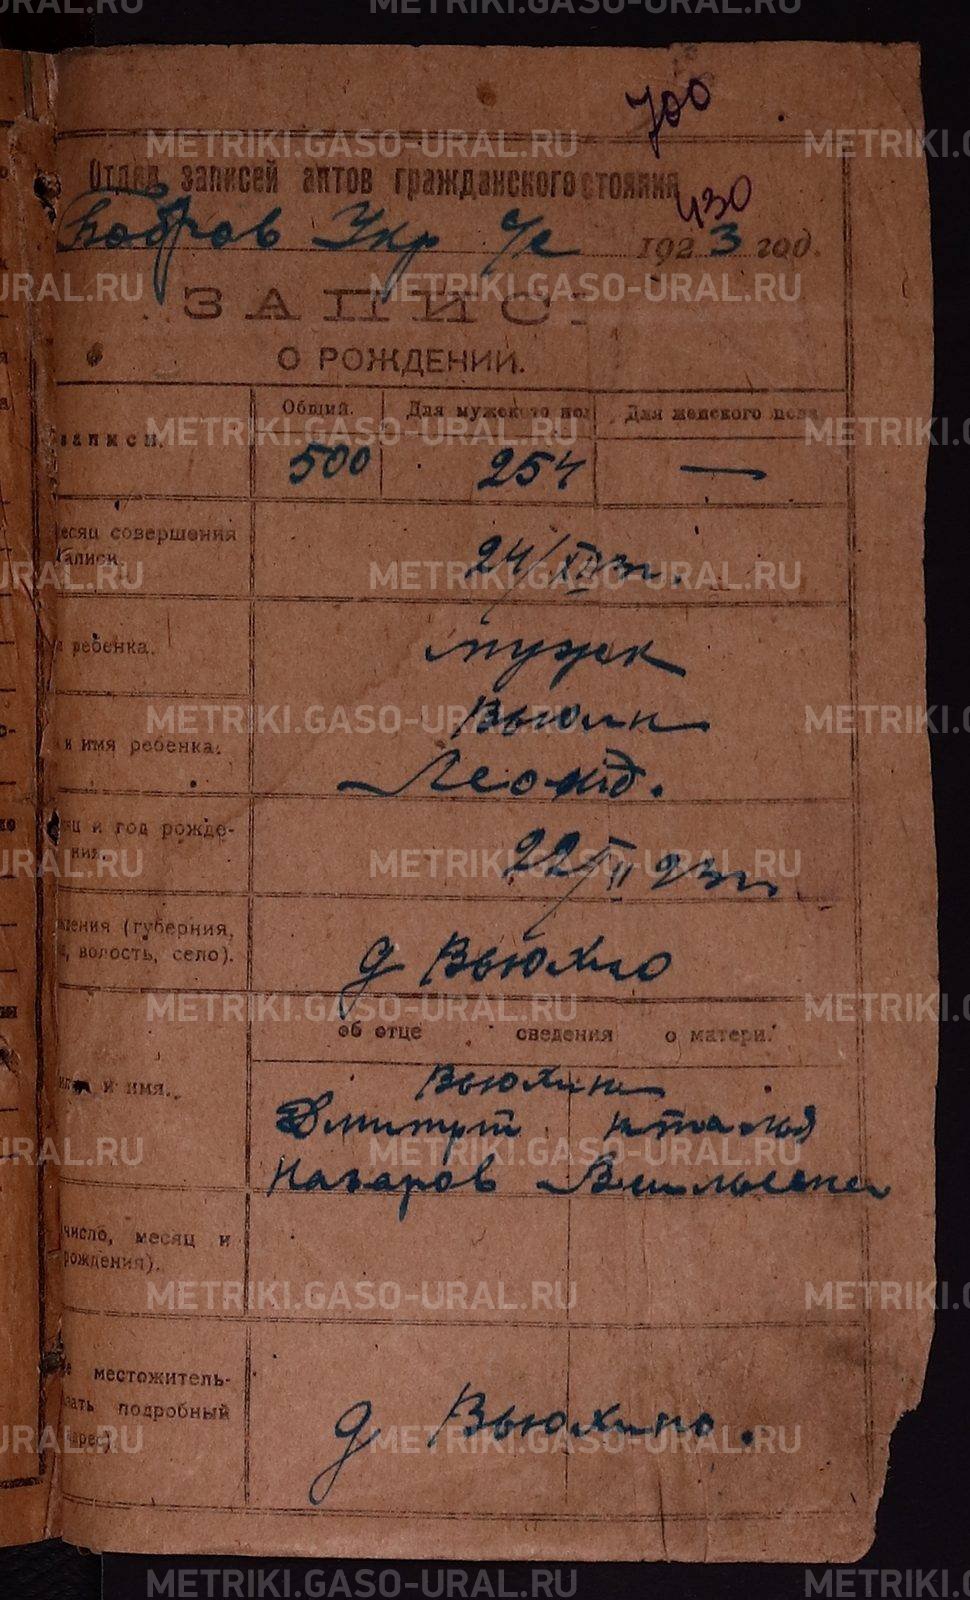 700
Отдел записей актов гражданского стояния
430
Бобров Укр У/е 1923 год.
ЗАПИС
О РОЖДЕНИИ.
Общий. Для мужского пол Для женского пола
записи. 500 254 —
есяц совершения
аписи.
24/XII 23 г.
ребенка. мужк
Вьюхин
и имя ребенка.
Леонид.
яц и год рожде-
ния.
22/II 23 г.
дения (губерния,
, волость, село).
д Вьюхино
об отце сведения о матери.
Вьюхин
и имя.
Дмитрий Наталья
Назаров Васильевна
число, месяц и
рождения).
местожитель-
зать подробный
адрес).
д Вьюхино.
METRIKI.GASO-URAL.RU